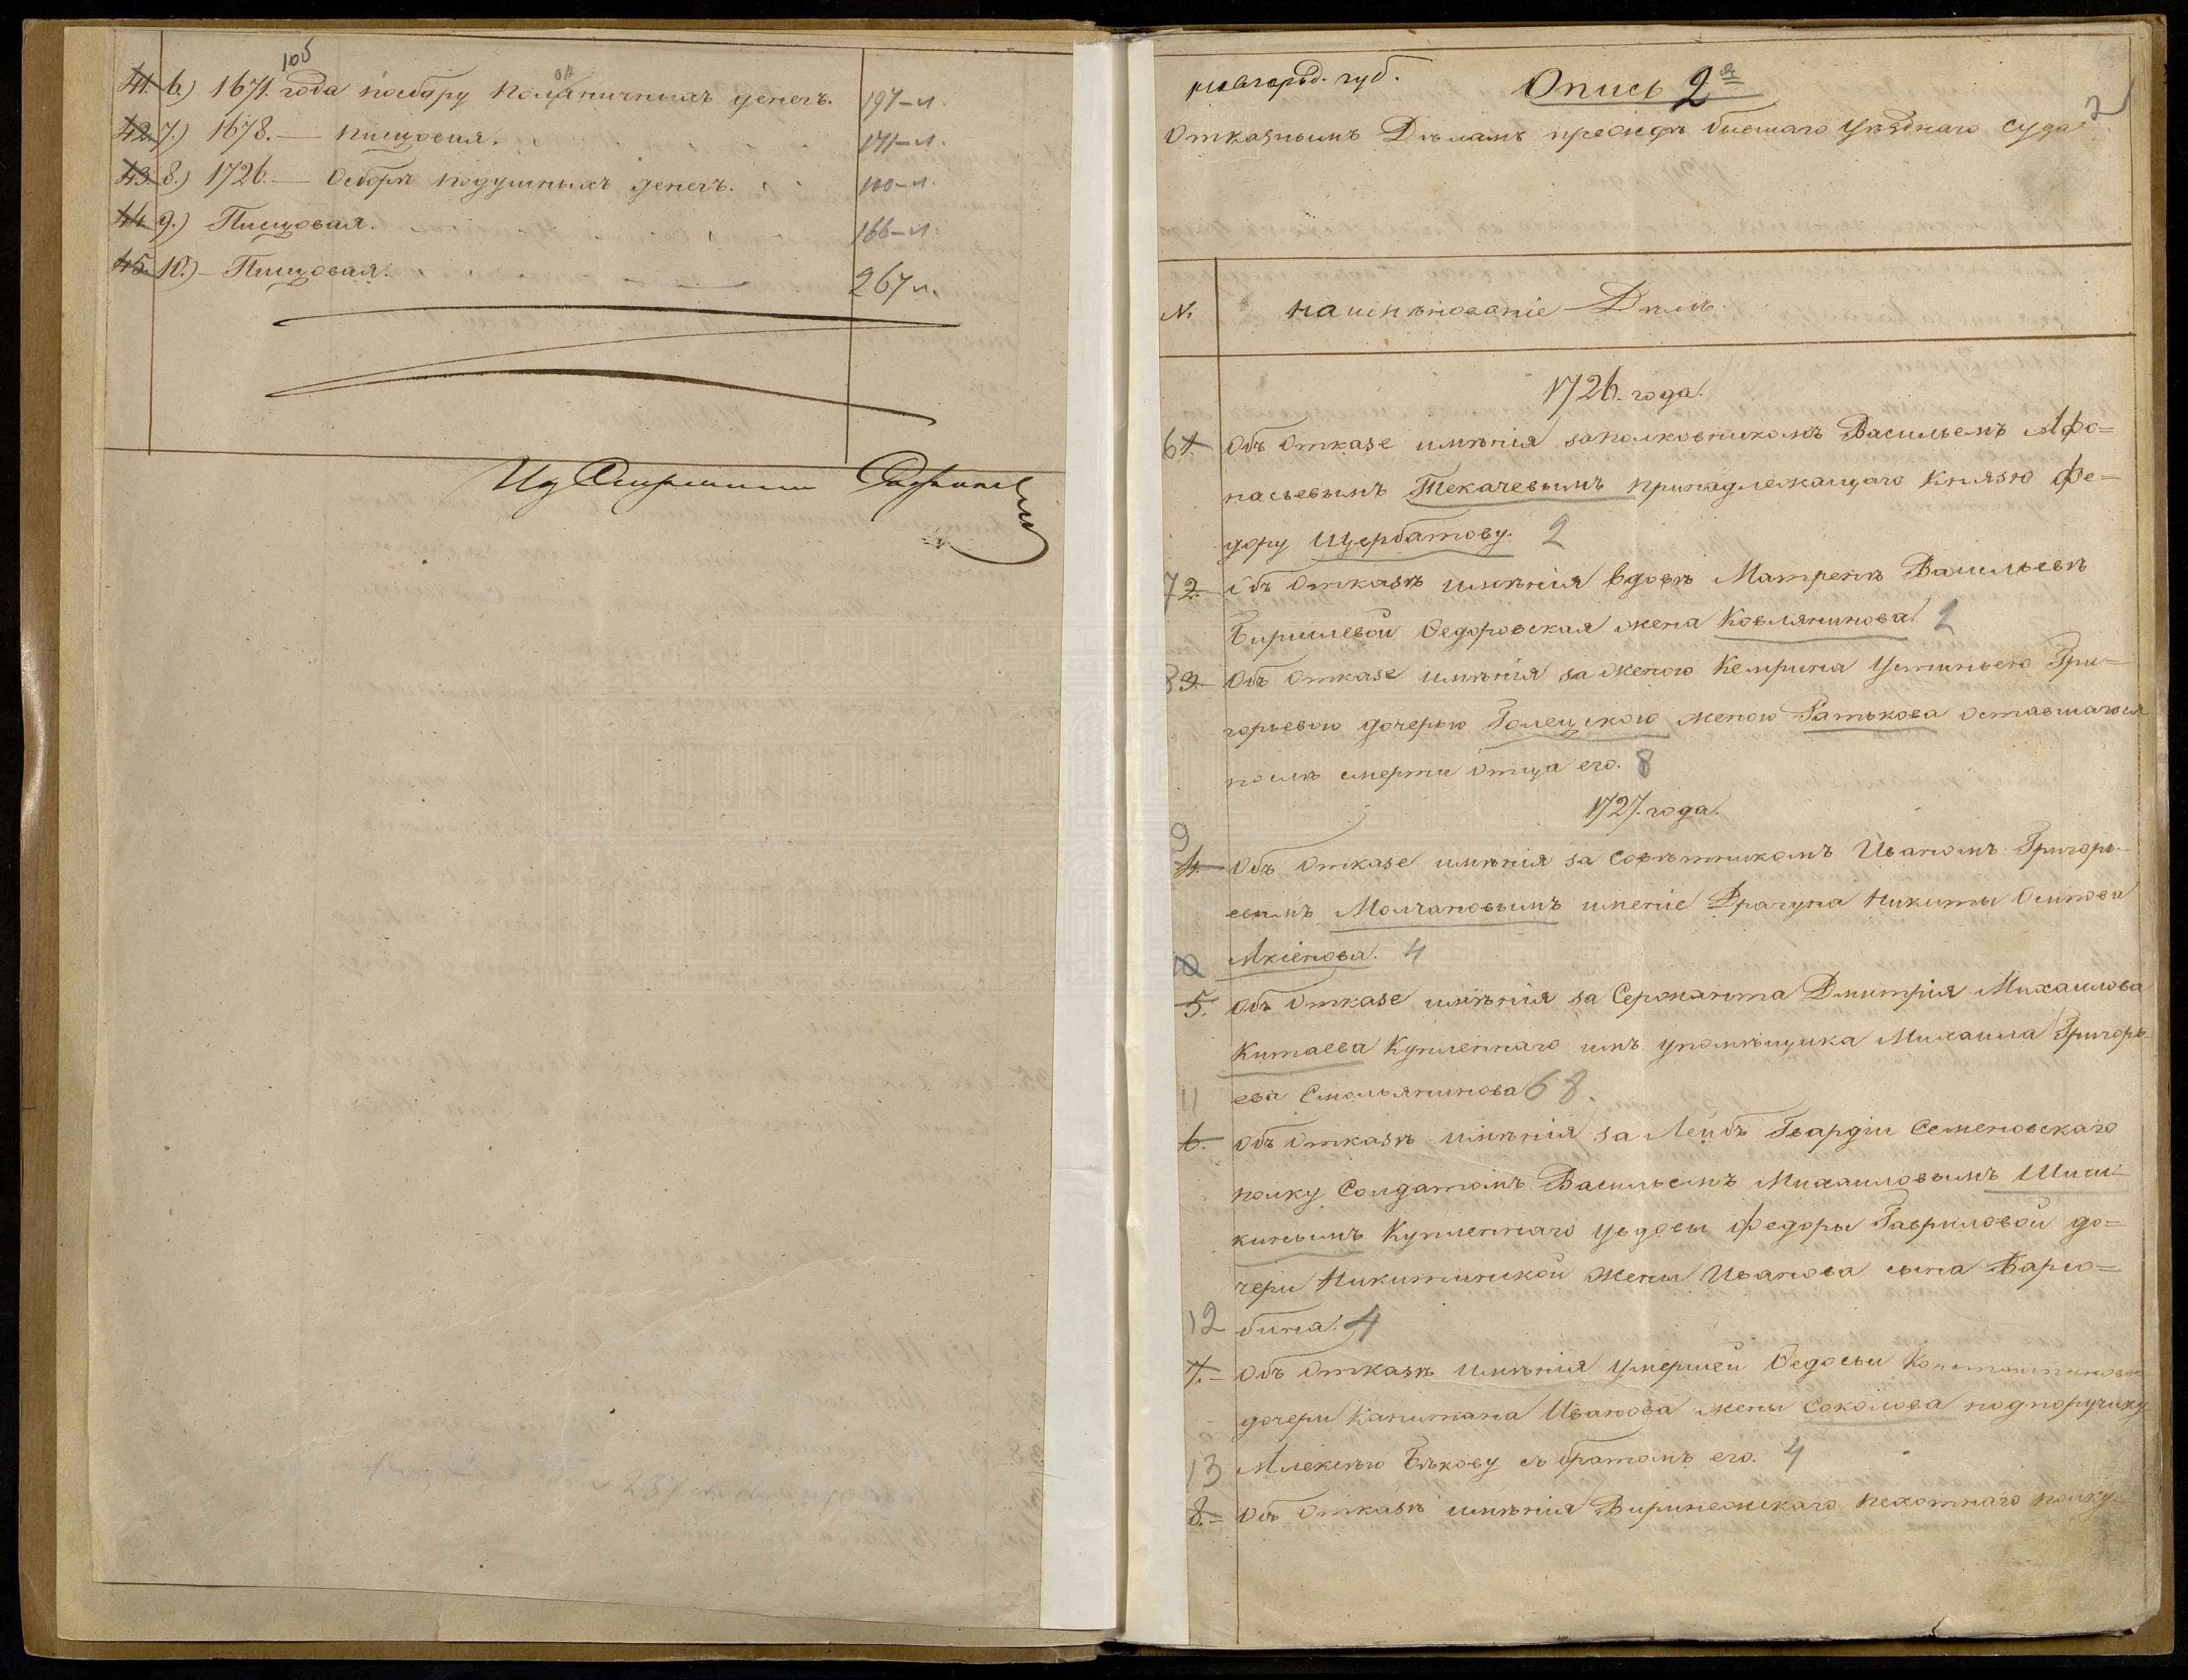 105
41. 6.) 1671. года посбору Полоняничныхъ денегъ. 197-л.
42. 7.) 1678. — пищовая. 171-л.
43. 8.) 1726. — Осборѣ подушныхъ денегъ. 100-л.
44. 9.) Пищовая. 166-л.
45. 10.) — Пищовая. 267 л.
новгород. губ.
Опись 2я
2
Отказнымъ Дѣламъ прежде бывшаго Уѣзднаго Суда
№ наименованіе Дѣлъ.
1726. года.
6 1. Объ отказе имѣнія заполковникомъ Васильемъ Афо=
насьевымъ Текачевымъ принадлежащаго Князю Фе=
дору Щербатову. 2
7 2. Объ отказѣ имѣнія вдовѣ Матренѣ Васильевѣ
Биришевой Ѳедоровская жена Ковлянинова. 2
8 3. Объ отказе имѣнія за женою Кемрина Устиньею Гри=
горьевою дочерью Голецкою женою Ратькова оставшагося
послѣ смерти отца его. 8
1727. года.
9
4. Объ отказе имѣнія за Совѣтникомъ Иваномъ Григорь=
евымъ Молчановымъ имение Драгуна Никиты Осипова
10 Акіенова. 4
5. Объ отказе имѣнія за Сержанта Дмитрія Михаилова
Китаева Купленнаго имъ упомѣщика Михаила Григорь
11 ева Смольянинова 68.
6. Объ отказѣ имѣнія за Лейбъ Гвардіи Семеновскаго
полку Солдатомъ Васильемъ Михаиловымъ Шиш=
кинымъ Купленнаго увдовы Федоры Гавриловой до=
чери Никитинской жены Иванова сына Варсо=
12 бина. 4
7. Объ отказѣ имѣнія умершей Ѳедосьи Константиновой
дочери Капитана Иванова жены Соколова подпоручику
13 Алексѣю Бѣкову съ братомъ его. 4
8. = Объ отказѣ имѣнія Виринежскаго пехотнаго полку